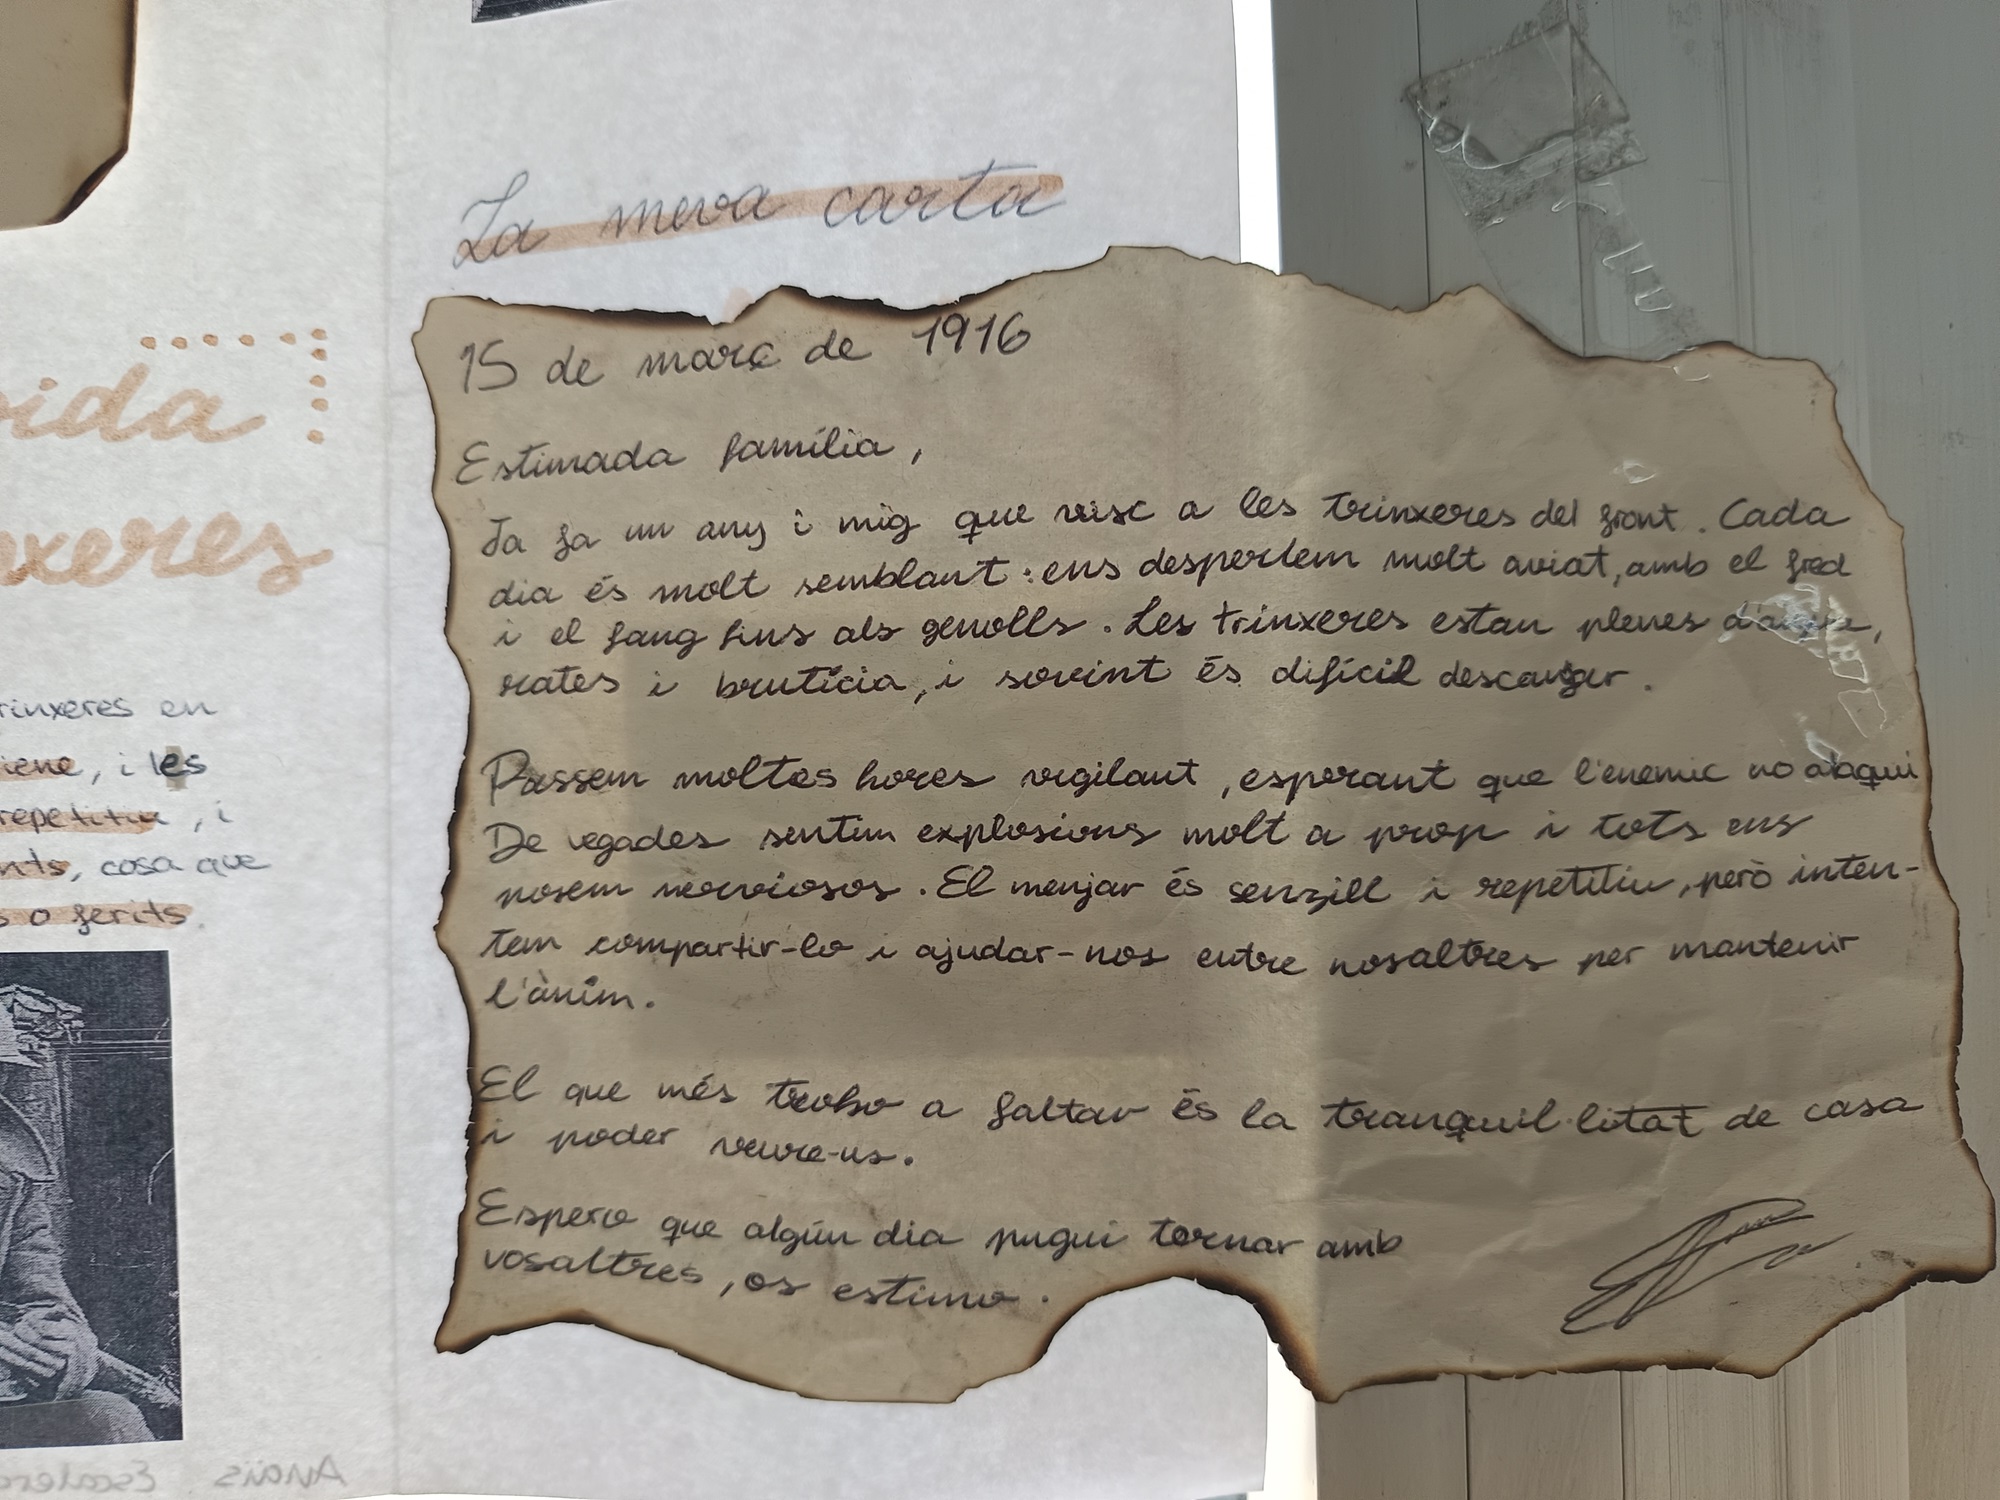 La meva carta
15 de març de 1916
Estimada família,
Ja fa un any i mig que visc a les trinxeres del front. Cada
dia és molt semblant: ens despertem molt aviat, amb el fred
i el fang fins als genolls. Les trinxeres estan plenes d'aigua,
rates i brutícia, i sovint és difícil descansar.
Passem moltes hores vigilant, esperant que l'enemic no ataqui
De vegades sentim explosions molt a prop i tots ens
posem nerviosos. El menjar és senzill i repetitiu, però inten-
tem compartir-lo i ajudar-nos entre nosaltres per mantenir
l'ànim.
El que més trobo a faltar és la tranquil·litat de casa
i poder veure-us.
Espero que algún dia pugui tornar amb
vosaltres, os estimo.
vida
xeres
rinxeres en
iene, i les
repetitiu, i
nts, cosa que
s o ferits.
Anaïs Escalera